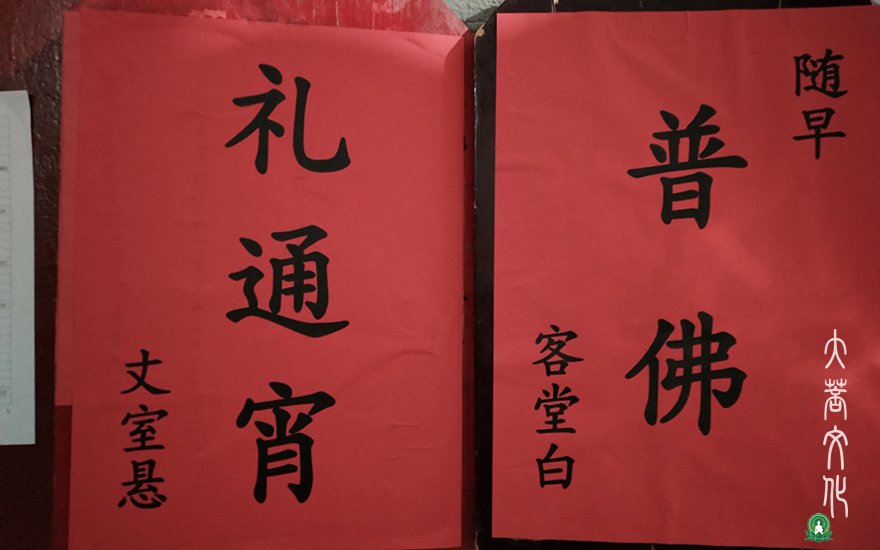 随早
普佛
客堂白
礼通宵
丈室悬
大菩文化